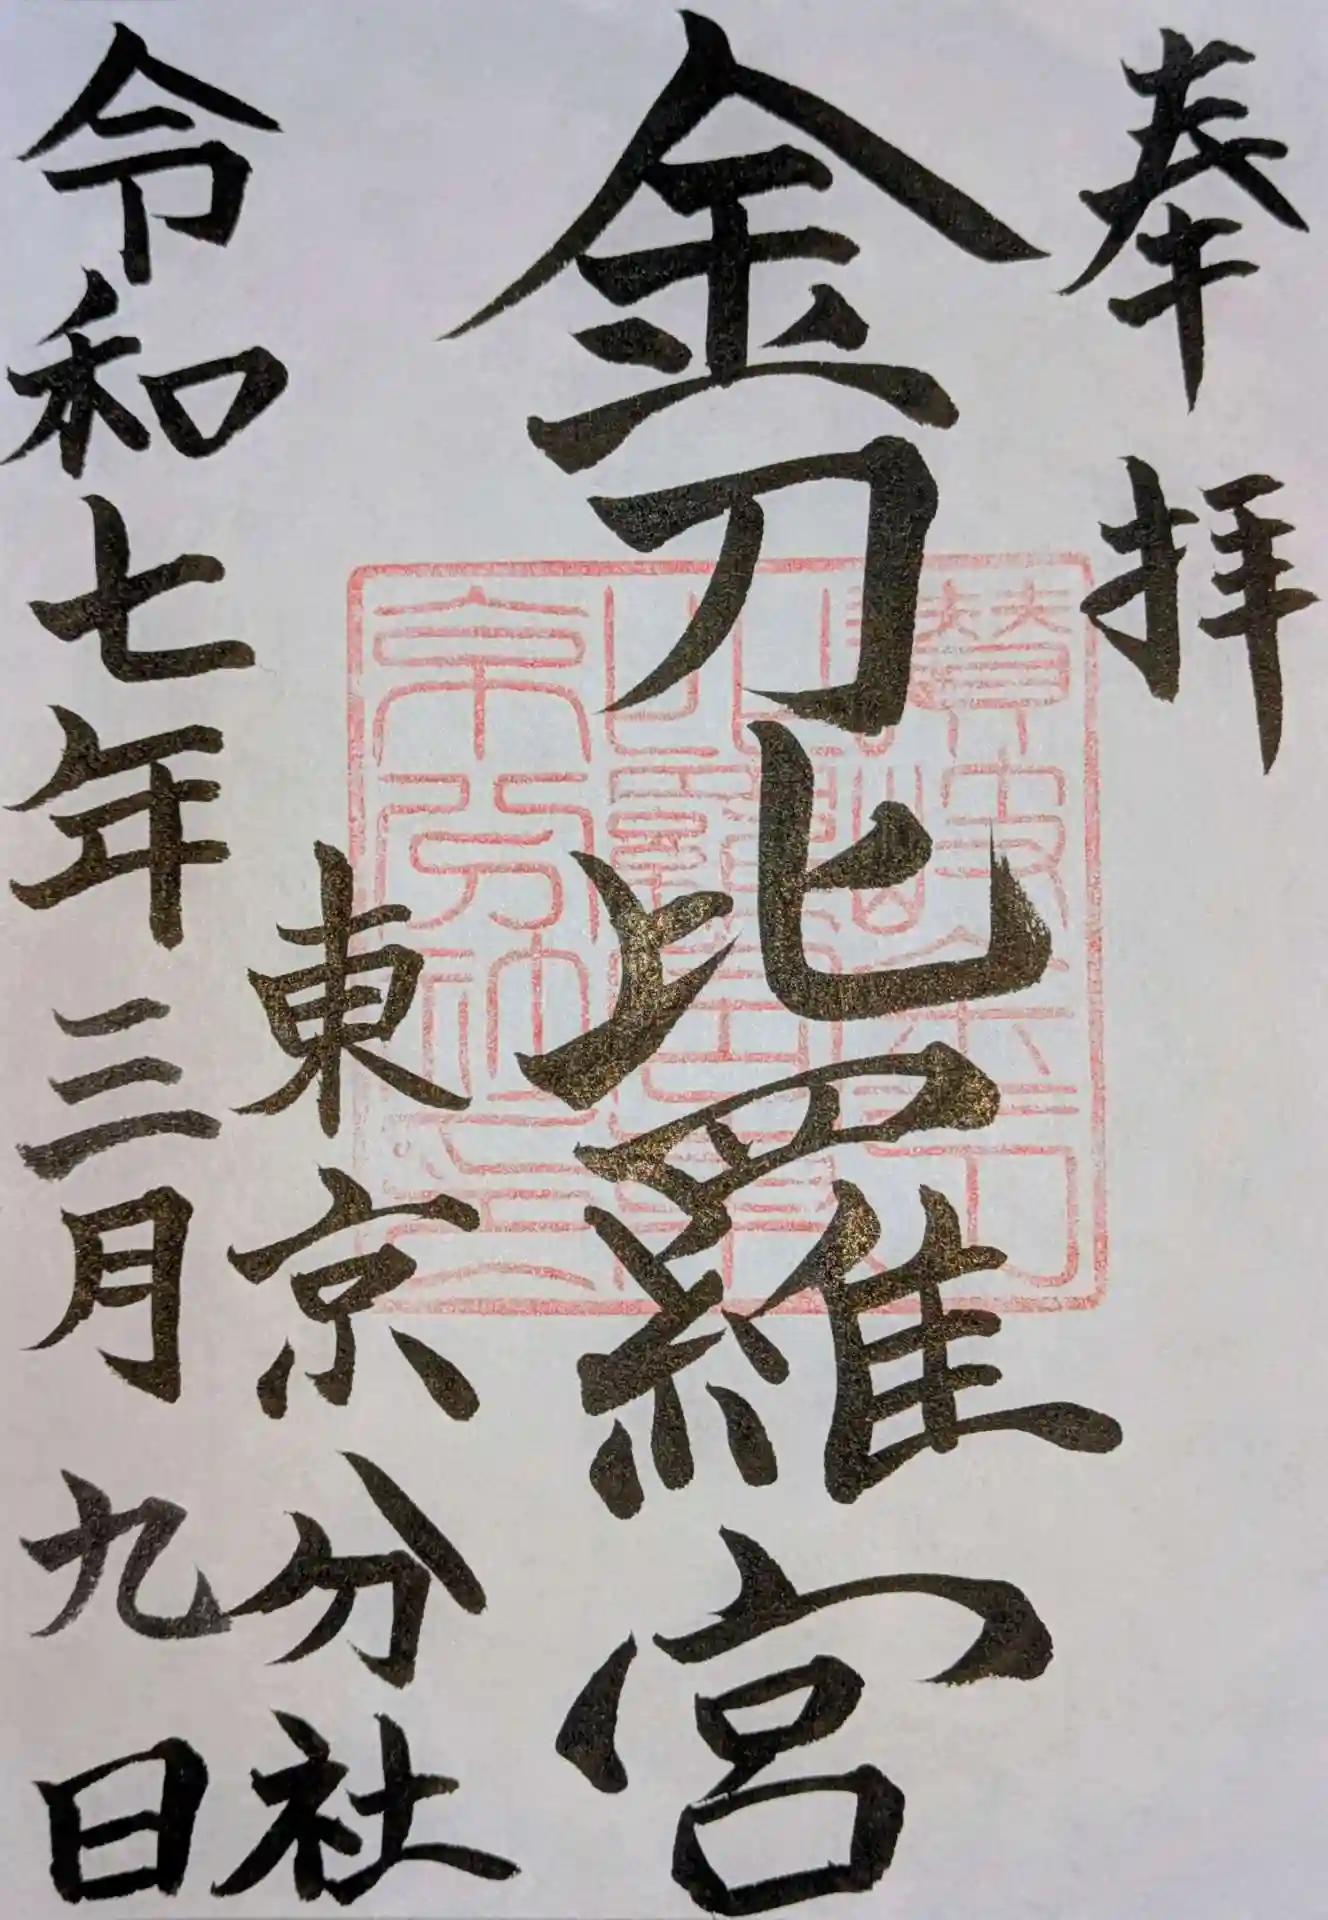 奉拝
金刀比羅宮
東京分社
令和七年三月九日